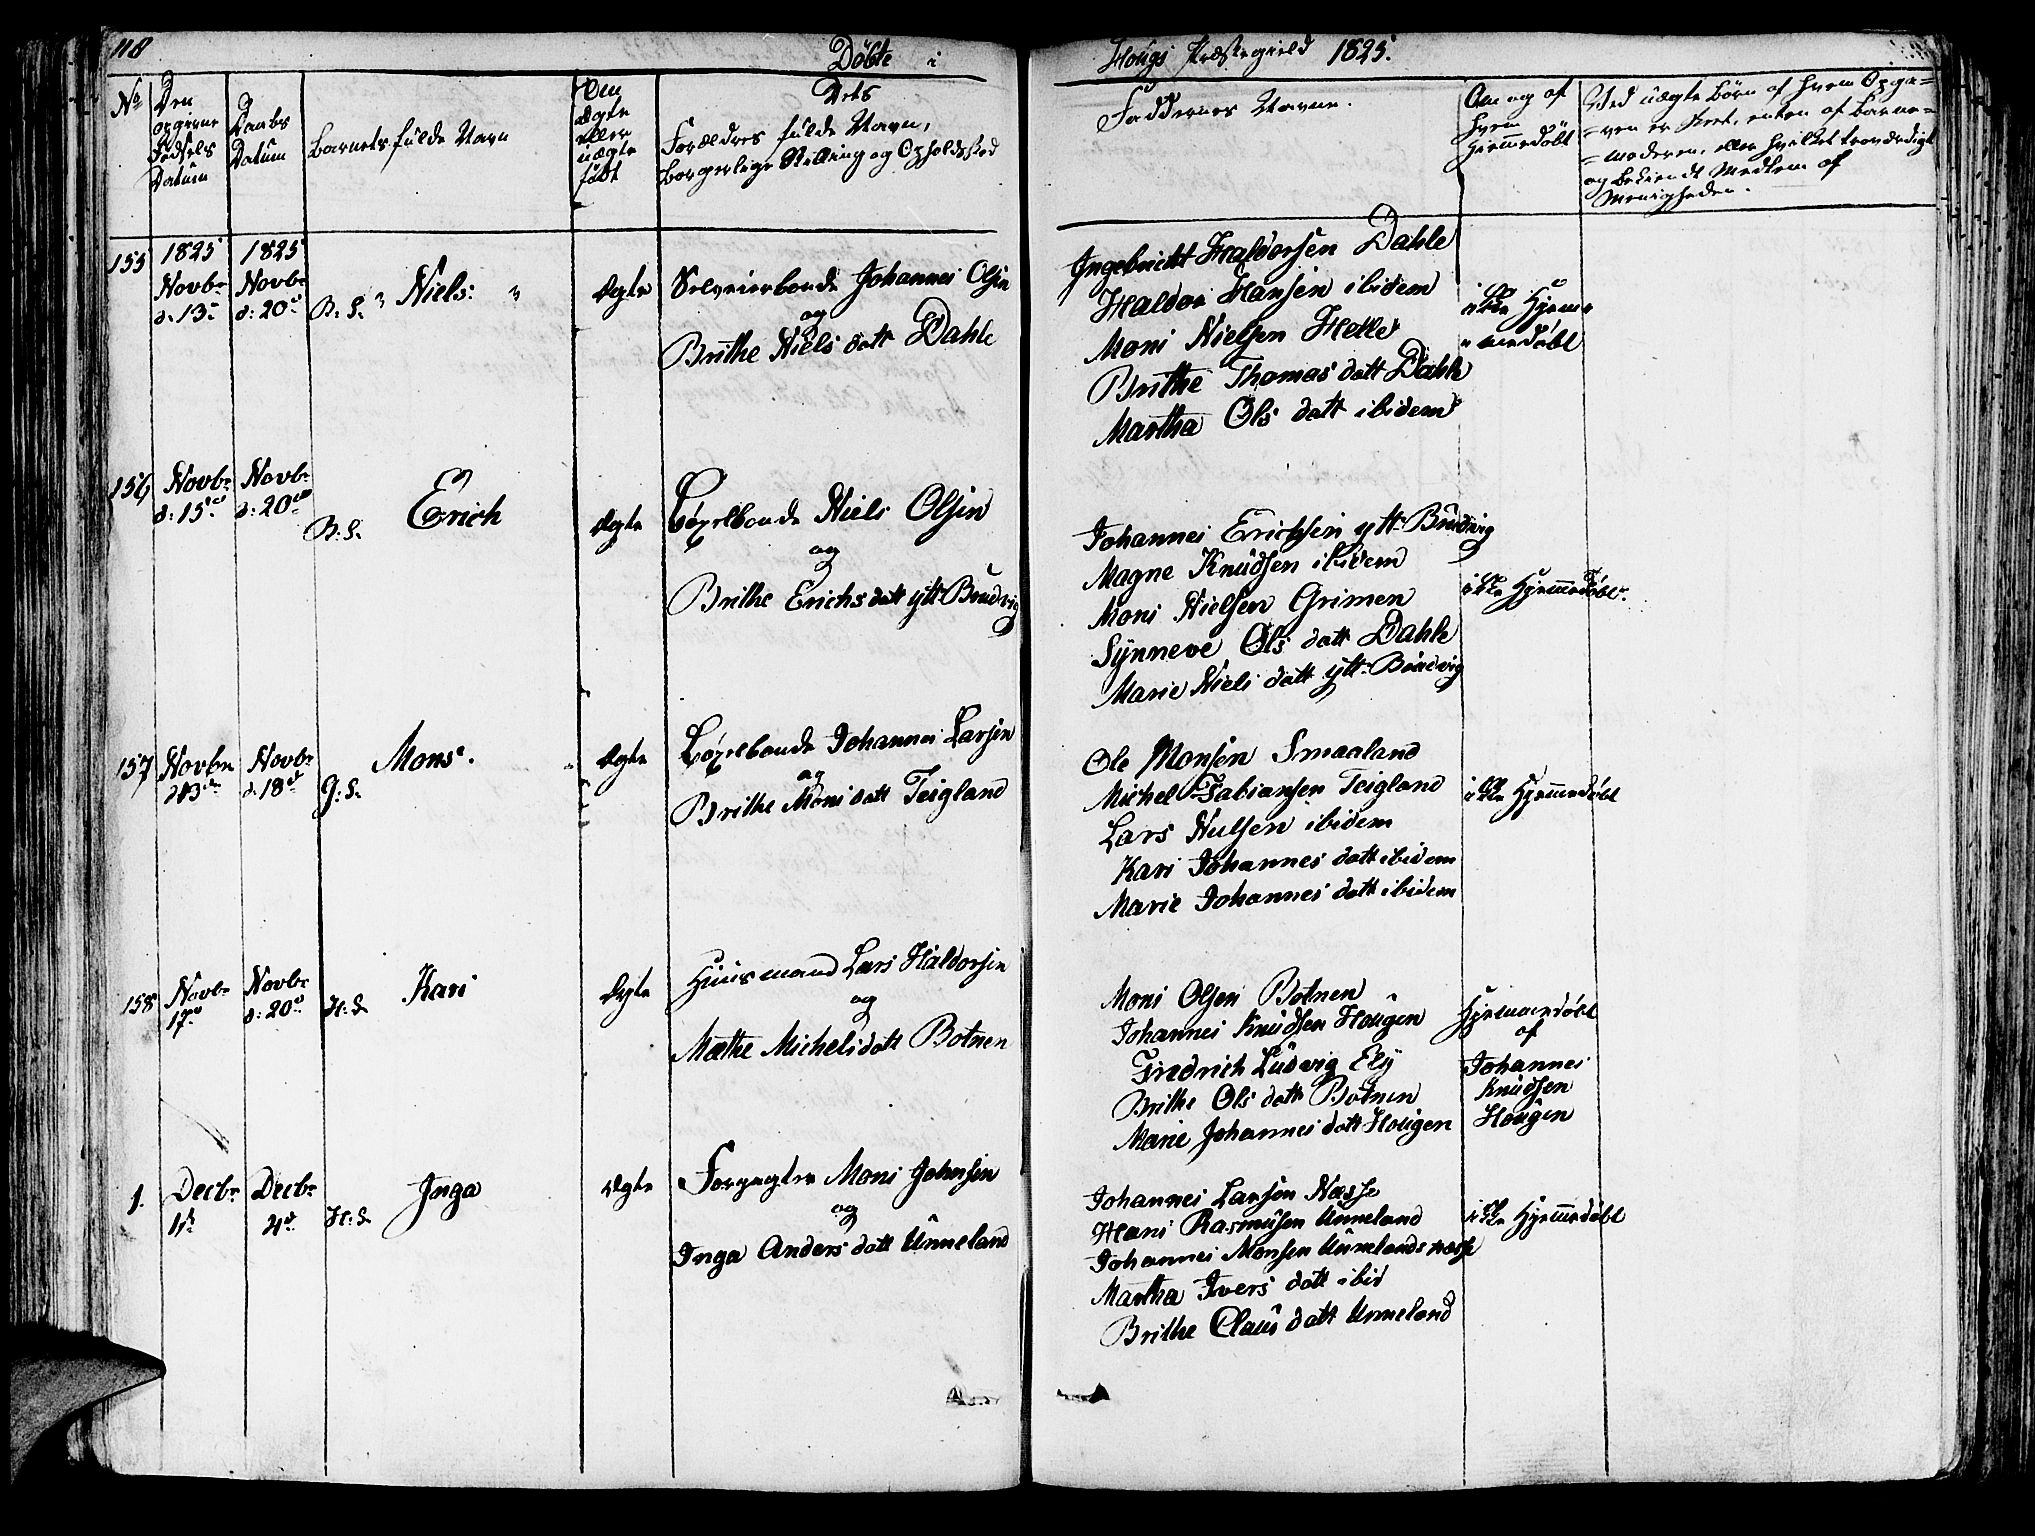 118
Døbte i
Hougs Præstegield 1825.
No
Den opgivne Fødsels Datum
Daabs Datum
Barnets fulde Navn
Om ægte eller uægte født
Dets Forældres fulde Navn, borgerlige Stilling og Opholdssted
Faddernes Navne.
Om og af hvem Hjemmedöbt
Ved uægte Børn af hvem Opga=
=ven er skeet, enten af Barne=
=moderen, eller hvilket troværdigt
og bekiendt Medlem af
Menigheden.
155
1825 Novbr d: 13
1825 Novbr d: 20
B. S.
Niels:
Ægte
Selveierbonde Johannes Olsen
og
Brithe Niels datt Dahle
Ingebricht Haldorsen Dahle
Haldor Hansen ibidem
Moni Nielsen Helle
Brithe Thomas datt Dahle
Martha Ols datt ibidem
ikke Hjem=
=medøbt
156
Novbr d: 15
Novbr d: 20
B: S.
Erich
Ægte
Løxelbonde Niels Olsen
og
Brithe Erichs datt ytt: Brudvig
Johannes Erichsen ytt: Brudvig
Magne Knudsen ibidem
Moni Nielsen Grimen
Synneve Ols datt Dahle
Marie Niels datt ytt: Brudvig
ikke Hjemmedøbt.
157
Novbr d 13
Novbr d: 18
G: S.
Mons.
Ægte
Løxelbonde Johannes Larsen
og
Brithe Moni datt Teigland
Ole Monsen Smaaland
Michel Fabiansen Teigland
Lars Nielsen ibidem
Kari Johannes datt ibidem
Marie Johannes datt ibidem
ikke Hjemmedøbt
158
Novbr 17
Novbr d: 20
H: S
Kari
Ægte
Huusmand Lars Haldorsen
og
Mæthe Michels datt Botnen
Moni Olsen Botnen
Johannes Knudsen Hougen
Fredrich Ludvig Ely
Brithe Ols datt Botnen
Marie Johannes datt Hougen
Hjemmedøbt
af
Johannes
Knudsen
Hougen
1.
Decbr
Decbr 4
H: S
Inga
Ægte
Forpagter Moni Johnsen
og
Inga Anders datt Unneland
Johannes Larsen Næsse
Hans Rasmusen Unneland
Johannes Monsen Unnelandsnæsse
Martha Ivers datt ibid
Brithe Claus datt Unneland
ikke Hjemmedøbt